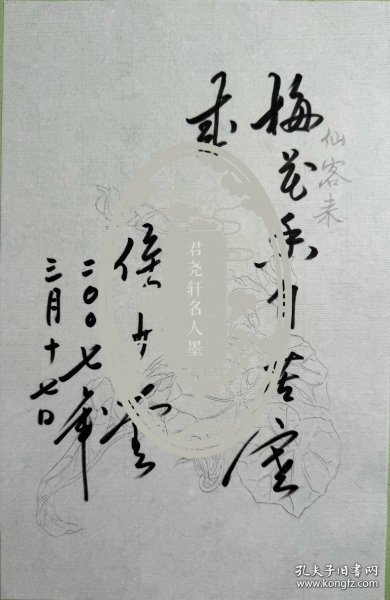 仙客来
梅花香自苦寒
来
侯少奎
二〇〇七年
三月十七日
君尧轩名人墨
孔夫子旧书网
www.kongfz.com